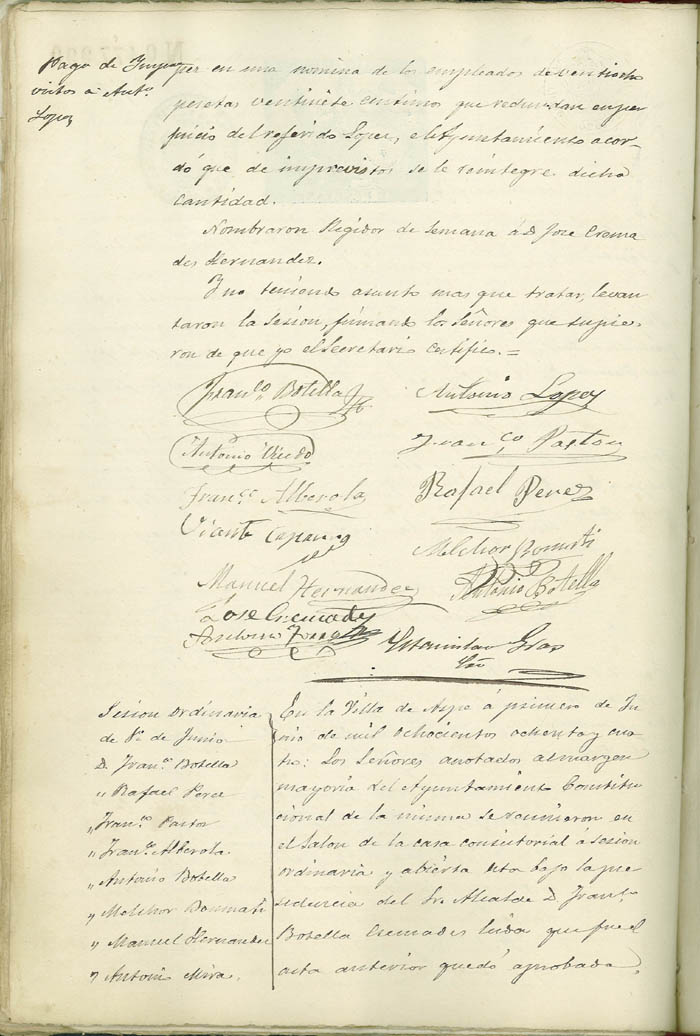 Pago de Impre
vistos a Antº.
Lopez
per en una nomina de los empleados de ventiocho
pesetas ventisiete centimos que redundan en per
juicio del referido Lopez, el Ayuntamiento acor-
dó que de imprevistos se le reintegre dicha
cantidad.
Nombraron Regidor de Semana á D. Jose Crema
des Hernandez.
Y no teniendo asunto mas que tratar, levan
taron la sesion, firmando los Señores que supie-
ron de que yo el Secretario certifico.=
Franco. Botella
Antonio Lopez
Antonio
Franco Pastor
Franco. Alberola
Rafael Perez
Vicente
Melchor Bonmati
Manuel Hernandez
Antonio Botella
Jose Cremades
Antonio
Estanislao Gras
Srio
Sesion ordinaria
de 1º de Junio
D. Franco. Botella
" Rafael Perez
" Franco. Pastor
" Franco. Alberola
" Antonio Botella
" Melchor Bonmati
" Manuel Hernandez
" Antonio Mira.
En la Villa de Aspe á primero de Ju
nio de mil ochocientos ochenta y cua
tro: Los Señores anotados al margen
mayoria del Ayuntamiento Constitu
cional de la misma se reunieron en
el Salon de la casa consistorial á sesion
ordinaria y abierta esta bajo la pre
sidencia del Sr. Alcalde D. Franco.
Botella Cremades leida que fue el
acta anterior quedó aprobada,